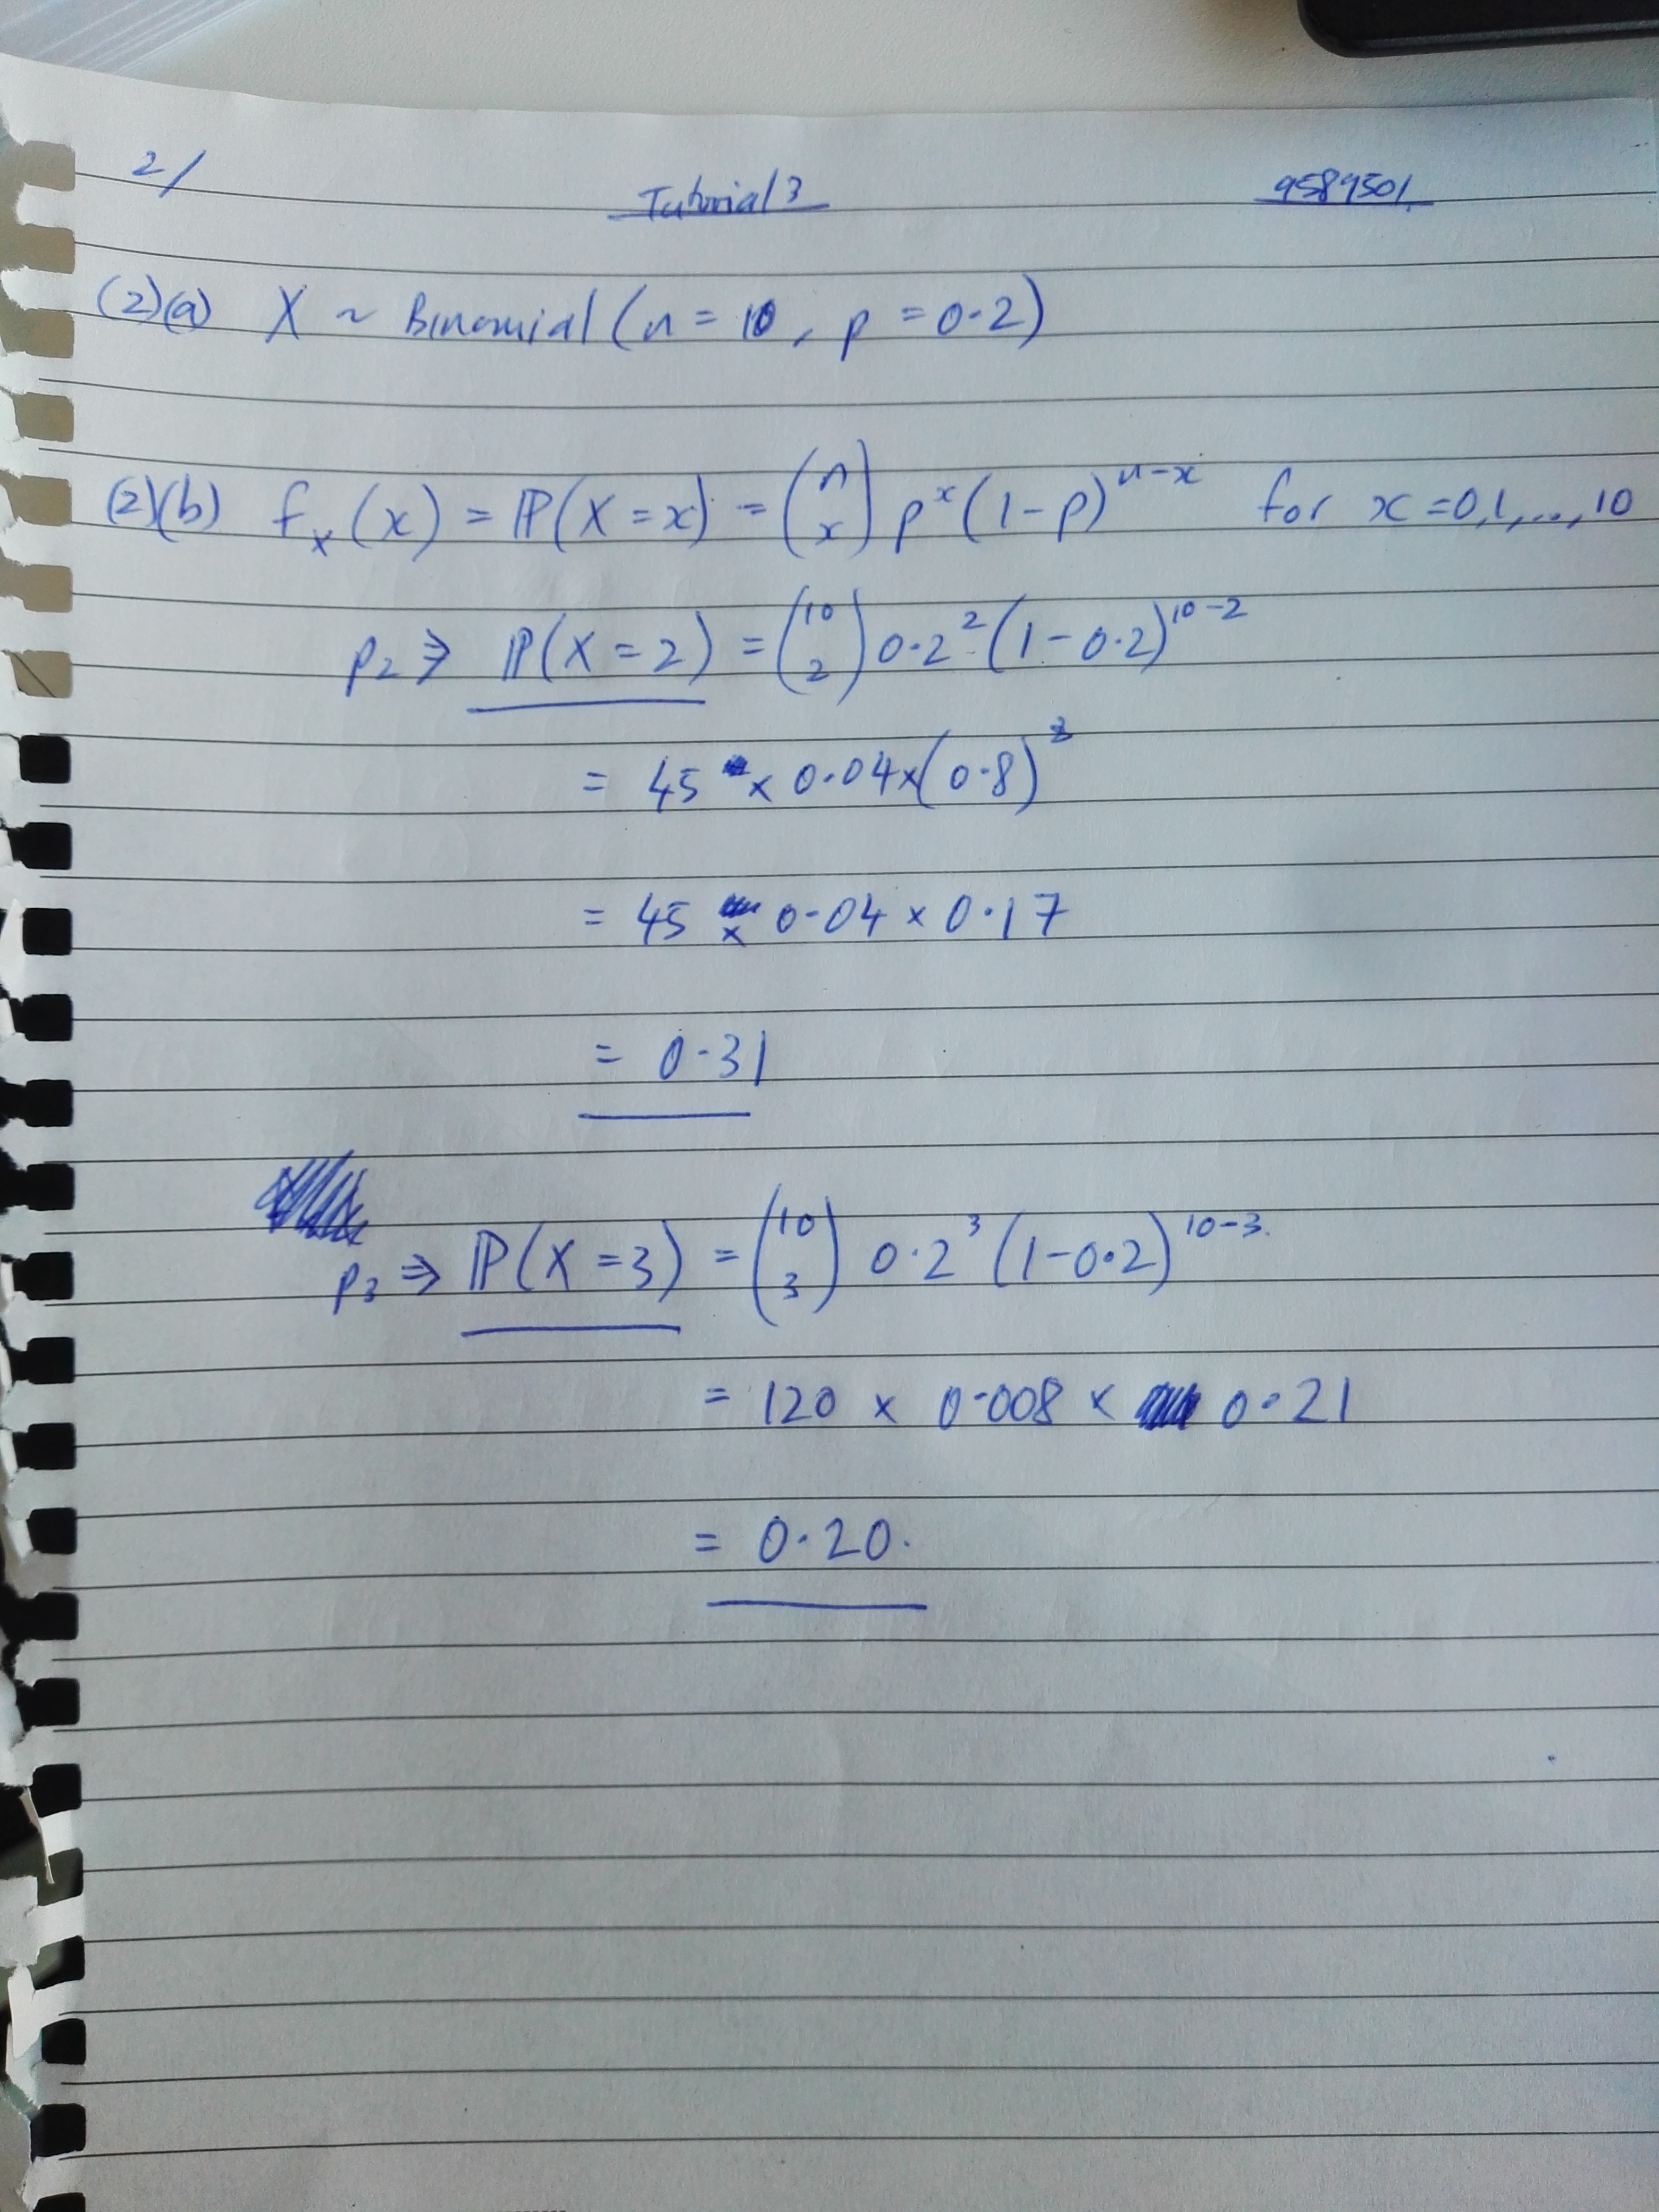 2/ Tutorial 3 9589501
(2)(a) X ~ Binomial (n = 10, p = 0.2)
(2)(b) fₓ(x) = ℙ(X = x) = (n x) pˣ(1-p)ⁿ⁻ˣ for x = 0,1,...,10
p₂ ⇒ ℙ(X = 2) = (10 2) 0.2² (1-0.2)¹⁰⁻²
= 45 × 0.04 × (0.8)⁸
= 45 × 0.04 × 0.17
= 0.31
p₃ ⇒ ℙ(X = 3) = (10 3) 0.2³ (1-0.2)¹⁰⁻³
= 120 × 0.008 × 0.21
= 0.20.